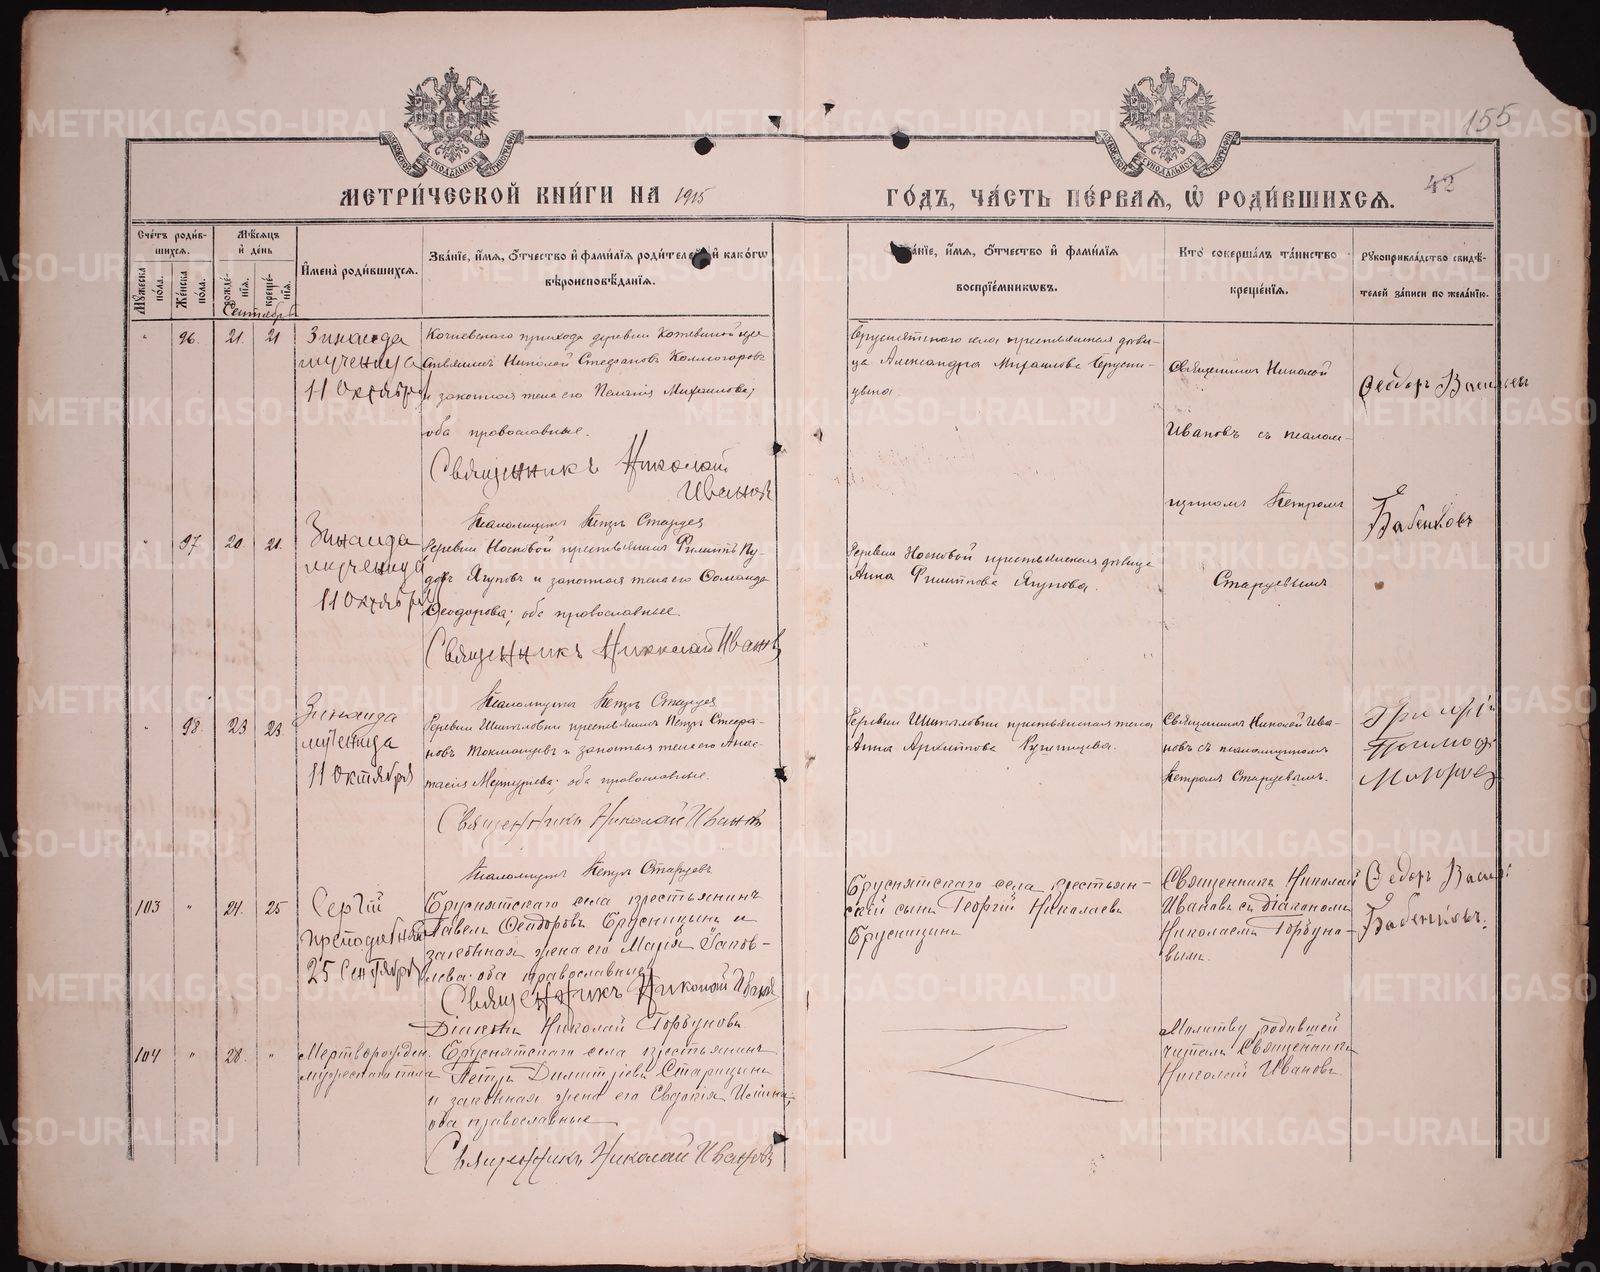 155
42
МЕТРИ́ЧЕСКОЙ КНИ́ГИ НА 1915
ГО́ДЪ, ЧА́СТЬ ПЕ́РВАѦ, Ѡ҆ РОДИ́ВШИХСѦ.
Сче́тъ роди́в-
шихсѧ.
Мꙋ́жеска пола.
Же́нска по́ла.
Мѣ́сѧцъ
и҆ де́нь
рожде́-
нїѧ.
креще́-
нїѧ.
Сентябрь
И҆мена̀ роди́вшихсѧ.
Зва́нїе, и҆́мѧ, ѻ҆́тчество и҆ фами́лїѧ роди́телей и҆ како́гѡ
вѣроисповѣ́данїѧ.
Зва́нїе, и҆́мѧ, ѻ҆́тчество и҆ фами́лїѧ
воспрїе́мниковъ.
Кто̀ соверша́лъ та́инство
креще́нїѧ.
Рꙋкоприкла́дство свидѣ́-
телей за́писи по жела́нїю.
" 96. 21. 21
Зинаида
мученица
11 Октября
Кочневского прихода деревни
Николай Стефановъ Колмогоровъ
и законная жена его Пелагія Михаилова;
оба православные.
Священникъ Николай
Ивановъ
Псаломщикъ Петръ Старцев
Бруснятского села крестьянская дѣви-
ца Александра Михаилова Брусни-
цына
Священникъ Николай
Ивановъ съ псалом-
щикомъ Петромъ
Старцевымъ
Ѳеодоръ Васильев
Бабенковъ
" 97 20. 21.
Зинаида
мученица
11 Октября
Деревни Носковой крестьянинъ Филиппъ
Ягуповъ и законная жена его Соломида
Ѳеодорова; оба православные.
Священникъ Николай Ивановъ
Псаломщикъ Петръ Старцев
Деревни Носковой крестьянская дѣвица
Анна Филиппова Ягупова.
" 98. 23 23.
Зинаида
мученица
11 Октября
Деревни крестьянинъ Петръ Стефа-
новъ Токманцевъ и законная жена его Анас-
тасія Меркурьева; оба православные.
Священникъ Николай Ивановъ
Псаломщикъ Петръ Старцевъ
Деревни крестьянская жена
Анна Архиппова
Священникъ Николай Ива-
новъ съ псаломщикомъ
Петромъ Старцевымъ.
103 " 24. 25
Сергій
преподобный
25 Сентября
Бруснятскаго села крестьянинъ
Павелъ Ѳеодоровъ Брусницынъ и
законная жена его Марія Іаков-
лева: оба православные
Священникъ Николай Ивановъ
Діаконъ Николай Горбуновъ
Бруснятскаго села крестьян-
скій сынъ Георгій Николаевъ
Брусницынъ
Священникъ Николай
Ивановъ съ діакономъ
Николаемъ Горбуно-
вымъ.
Ѳедоръ Василь
Бабенковъ.
104 " 28. "
Мертворожден.
мужескаго пола
Бруснятскаго села крестьянинъ
Петръ Димитріевъ Старицынъ
и законная жена его Евдокія
оба православные
Священникъ Николай Ивановъ
Молитву родившей
читалъ Священникъ
Николай Ивановъ.